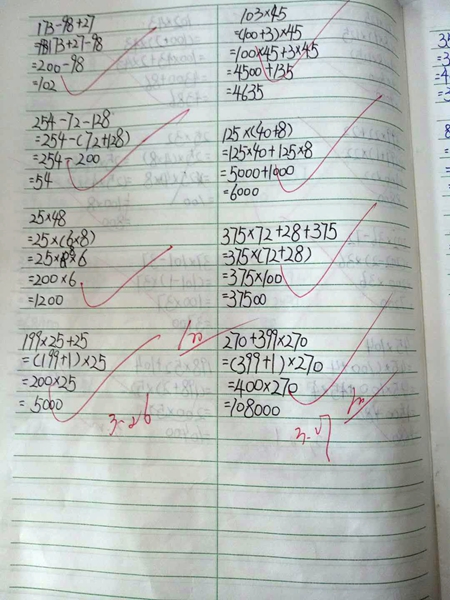 173-98+27
=173+27-98
=200-98
=102
254-72-128
=254-(72+128)
=254-200
=54
25×48
=25×(6×8)
=25×8×6
=200×6
=1200
199×25+25
=(199+1)×25
=200×25
=5000
3-26
103×45
=(100+3)×45
=100×45+3×45
=4500+135
=4635
125×(40+8)
=125×40+125×8
=5000+1000
=6000
375×72+28+375
=375×(72+28)
=375×100
=37500
270+399×270
=(399+1)×270
=400×270
=108000
3-27